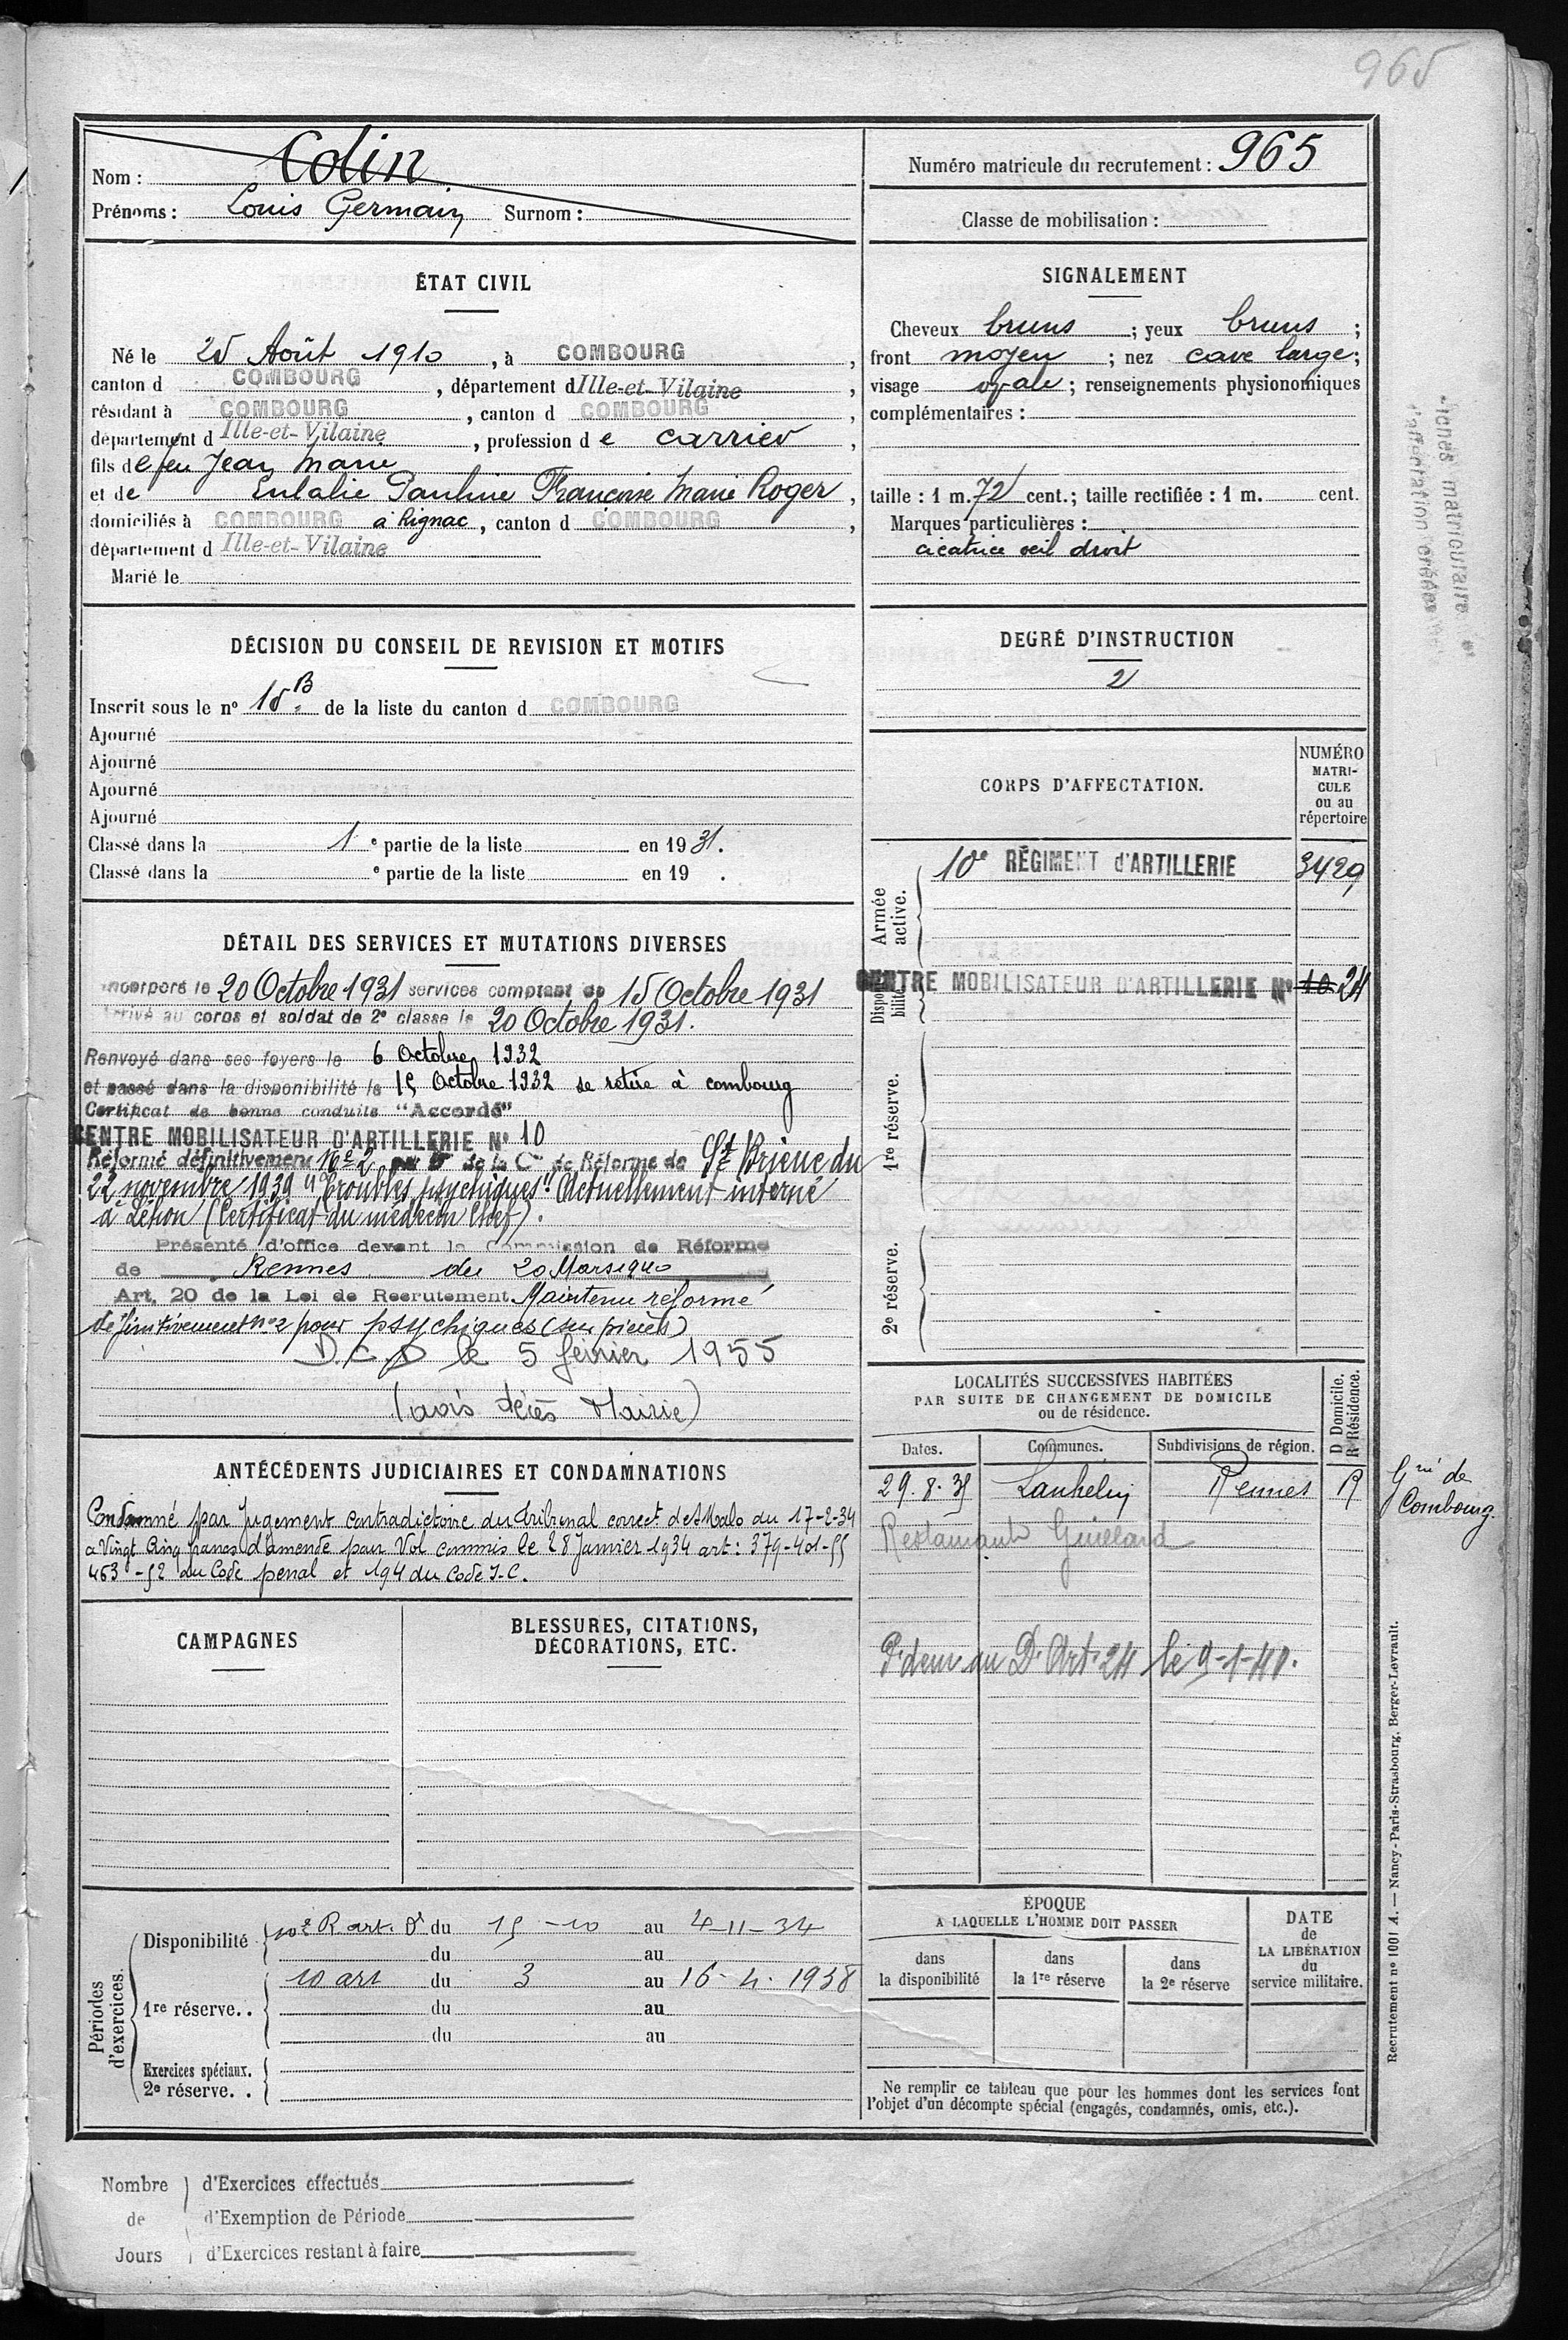 965
Nom : Colin
Prénoms : Louis Germain Surnom :
Numéro matricule du recrutement : 965
Classe de mobilisation :
ÉTAT CIVIL
Né le 25 Août 1910, à COMBOURG,
canton d COMBOURG, département d Ille-et-Vilaine,
résidant à COMBOURG, canton d COMBOURG,
département d Ille-et-Vilaine, profession d e carrier,
fils de feu Jean Marie
et de Eulalie Pauline Françoise Marie Roger,
domiciliés à COMBOURG à Rignac, canton d COMBOURG,
département d Ille-et-Vilaine
Marié le
SIGNALEMENT
Cheveux bruns ; yeux bruns ;
front moyen ; nez cave large ;
visage ovale ; renseignements physionomiques
complémentaires :
taille : 1 m. 72 cent.; taille rectifiée : 1 m. cent.
Marques particulières :
cicatrice œil droit
DÉCISION DU CONSEIL DE REVISION ET MOTIFS
Inscrit sous le nº 15 B de la liste du canton d COMBOURG
Ajourné
Ajourné
Ajourné
Ajourné
Classé dans la 1 e partie de la liste en 19 31.
Classé dans la e partie de la liste en 19 .
DEGRÉ D'INSTRUCTION
2
CORPS D'AFFECTATION.
NUMÉRO
MATRI-
CULE
ou au
répertoire
Armée active.
10e RÉGIMENT d'ARTILLERIE 3429
Disponibilité
CENTRE MOBILISATEUR D'ARTILLERIE Nº 10 24
1re réserve.
2e réserve.
DÉTAIL DES SERVICES ET MUTATIONS DIVERSES
Incorporé le 20 Octobre 1931 services comptant de 15 Octobre 1931
Arrivé au corps et soldat de 2e classe le 20 Octobre 1931.
Renvoyé dans ses foyers le 6 Octobre 1932
et passé dans la disponibilité le 15 Octobre 1932 se retire à combourg
Certificat de bonne conduite "Accordé"
CENTRE MOBILISATEUR D'ARTILLERIE Nº 10
Réformé définitivement Nº 2 de la Con de Réforme de St Brieuc du
22 novembre 1939 "Troubles psychiques". Actuellement interné
à Léhon (Certificat du médecin Chef).
Présenté d'office devant la Commission de Réforme
de Rennes du 20 Mars 1940
Art. 20 de la Loi de Recrutement Maintenu réformé
définitivement nº 2 pour psychiques (sur pièces)
D.C.D le 5 février 1955
(avis décès Mairie)
LOCALITÉS SUCCESSIVES HABITÉES
PAR SUITE DE CHANGEMENT DE DOMICILE
ou de résidence.
D Domicile.
R Résidence.
Dates. Communes. Subdivisions de région.
29.8.35 Lanhelin Rennes R
Grie de
Combourg.
Restaurant
le 9-1-40.
ANTÉCÉDENTS JUDICIAIRES ET CONDAMNATIONS
Condamné par Jugement contradictoire du Tribunal correct de St Malo du 17-2-34
a Vingt Cinq francs d'amende pour Vol commis le 28 Janvier 1934 art : 379-401-55
463-52 du Code penal et 194 du Code I-C.
CAMPAGNES
BLESSURES, CITATIONS,
DÉCORATIONS, ETC.
Périodes d'exercices.
Disponibilité 10e R art. Dre du 15-10 au 4-11-34
du au
1re réserve. . 10 art du 3 au 16-4-1938
du au
du au
Exercices spéciaux.
2e réserve. .
ÉPOQUE
A LAQUELLE L'HOMME DOIT PASSER
dans
la disponibilité
dans
la 1re réserve
dans
la 2e réserve
DATE
de
LA LIBÉRATION
du
service militaire.
Ne remplir ce tableau que pour les hommes dont les services font
l'objet d'un décompte spécial (engagés, condamnés, omis, etc.).
Recrutement nº 1001 A. — Nancy-Paris-Strasbourg, Berger-Levrault.
Nombre d'Exercices effectués
de d'Exemption de Période
Jours d'Exercices restant à faire